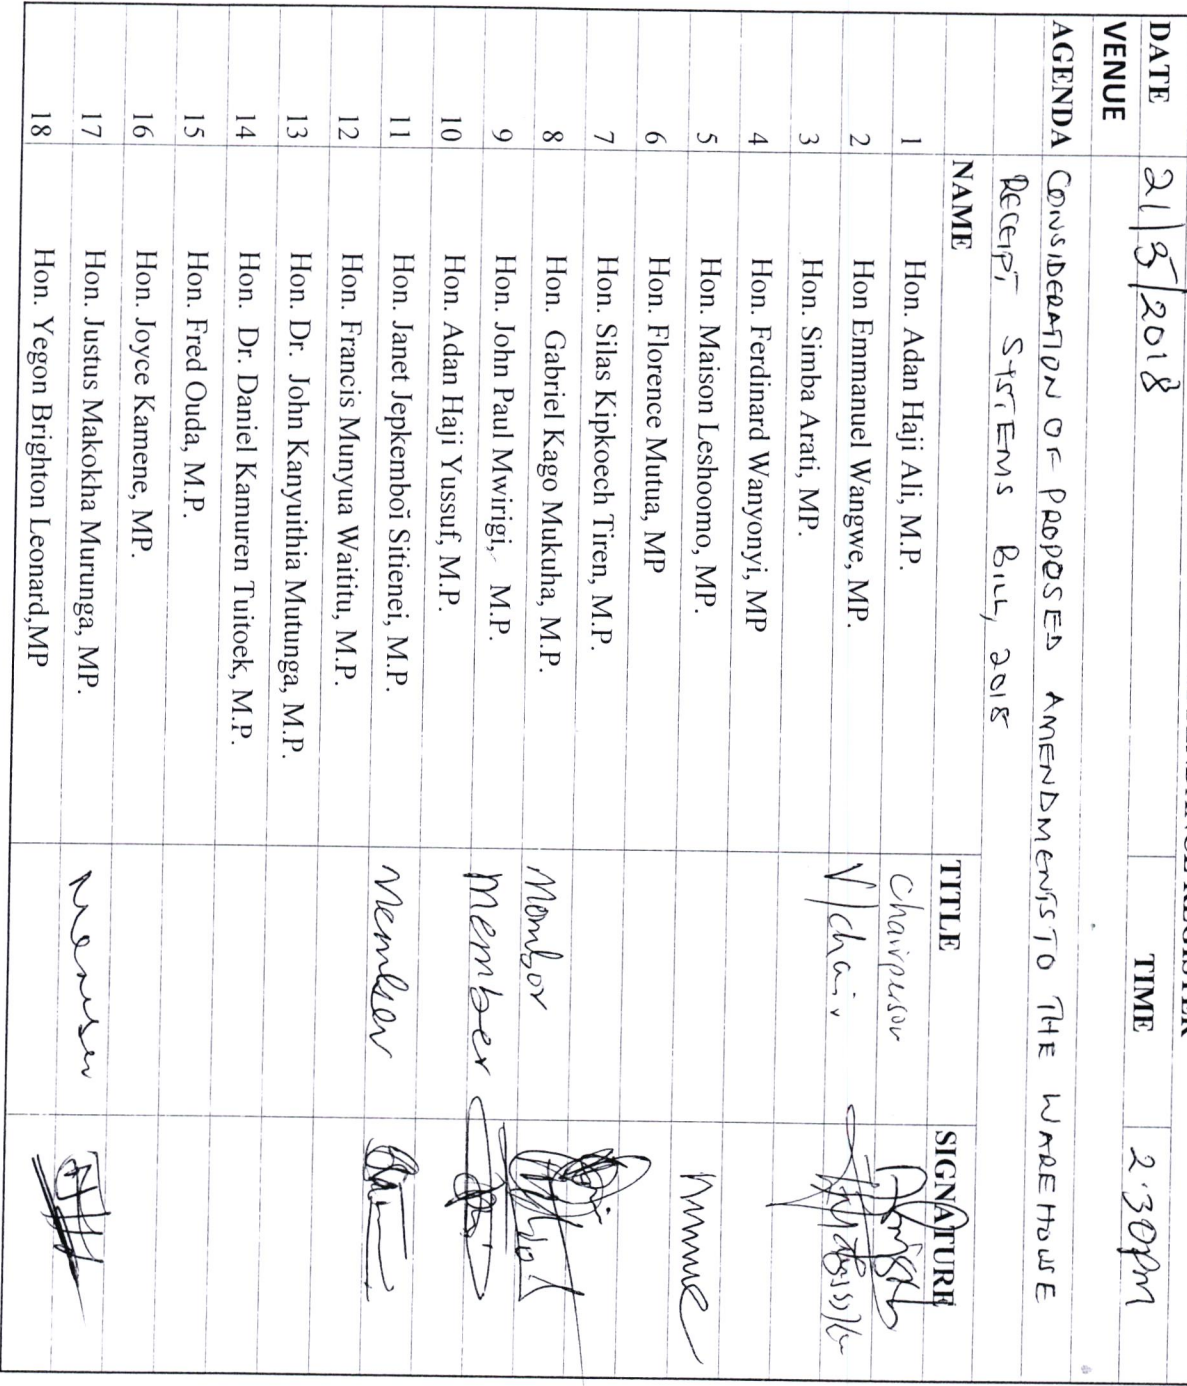 REGISTER
DATE 21/3/2018 TIME 2.30pm
VENUE
AGENDA CONSIDERATION OF PROPOSED AMENDMENTS TO THE WAREHOUSE
RECEIPT SYSTEMS BILL, 2018
NAME TITLE SIGNATURE
1 Hon. Adan Haji Ali, M.P. Chairperson
2 Hon Emmanuel Wangwe, MP. V/chair
3 Hon. Simba Arati, MP.
4 Hon. Ferdinard Wanyonyi, MP
5 Hon. Maison Leshoomo, MP.
6 Hon. Florence Mutua, MP
7 Hon. Silas Kipkoech Tiren, M.P.
8 Hon. Gabriel Kago Mukuha, M.P. Member
9 Hon. John Paul Mwirigi, M.P. Member
10 Hon. Adan Haji Yussuf, M.P.
11 Hon. Janet Jepkemboi Sitienei, M.P. Member
12 Hon. Francis Munyua Waititu, M.P.
13 Hon. Dr. John Kanyuithia Mutunga, M.P.
14 Hon. Dr. Daniel Kamuren Tuitoek, M.P.
15 Hon. Fred Ouda, M.P.
16 Hon. Joyce Kamene, MP.
17 Hon. Justus Makokha Murunga, MP. Member
18 Hon. Yegon Brighton Leonard,MP